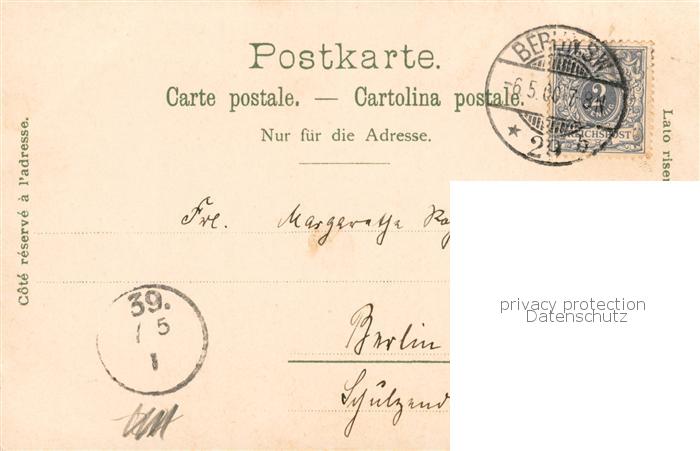 Postkarte.
Carte postale. — Cartolina postale.
Nur für die Adresse.
Côté réservé à l'adresse.
Lato riser
BERLIN SW
6.5.00 7-8N
* 29 b
2
REICHSPOST
Frl. Margarethe
Berlin
Schulzend
39.
7 5
1
privacy protection
Datenschutz